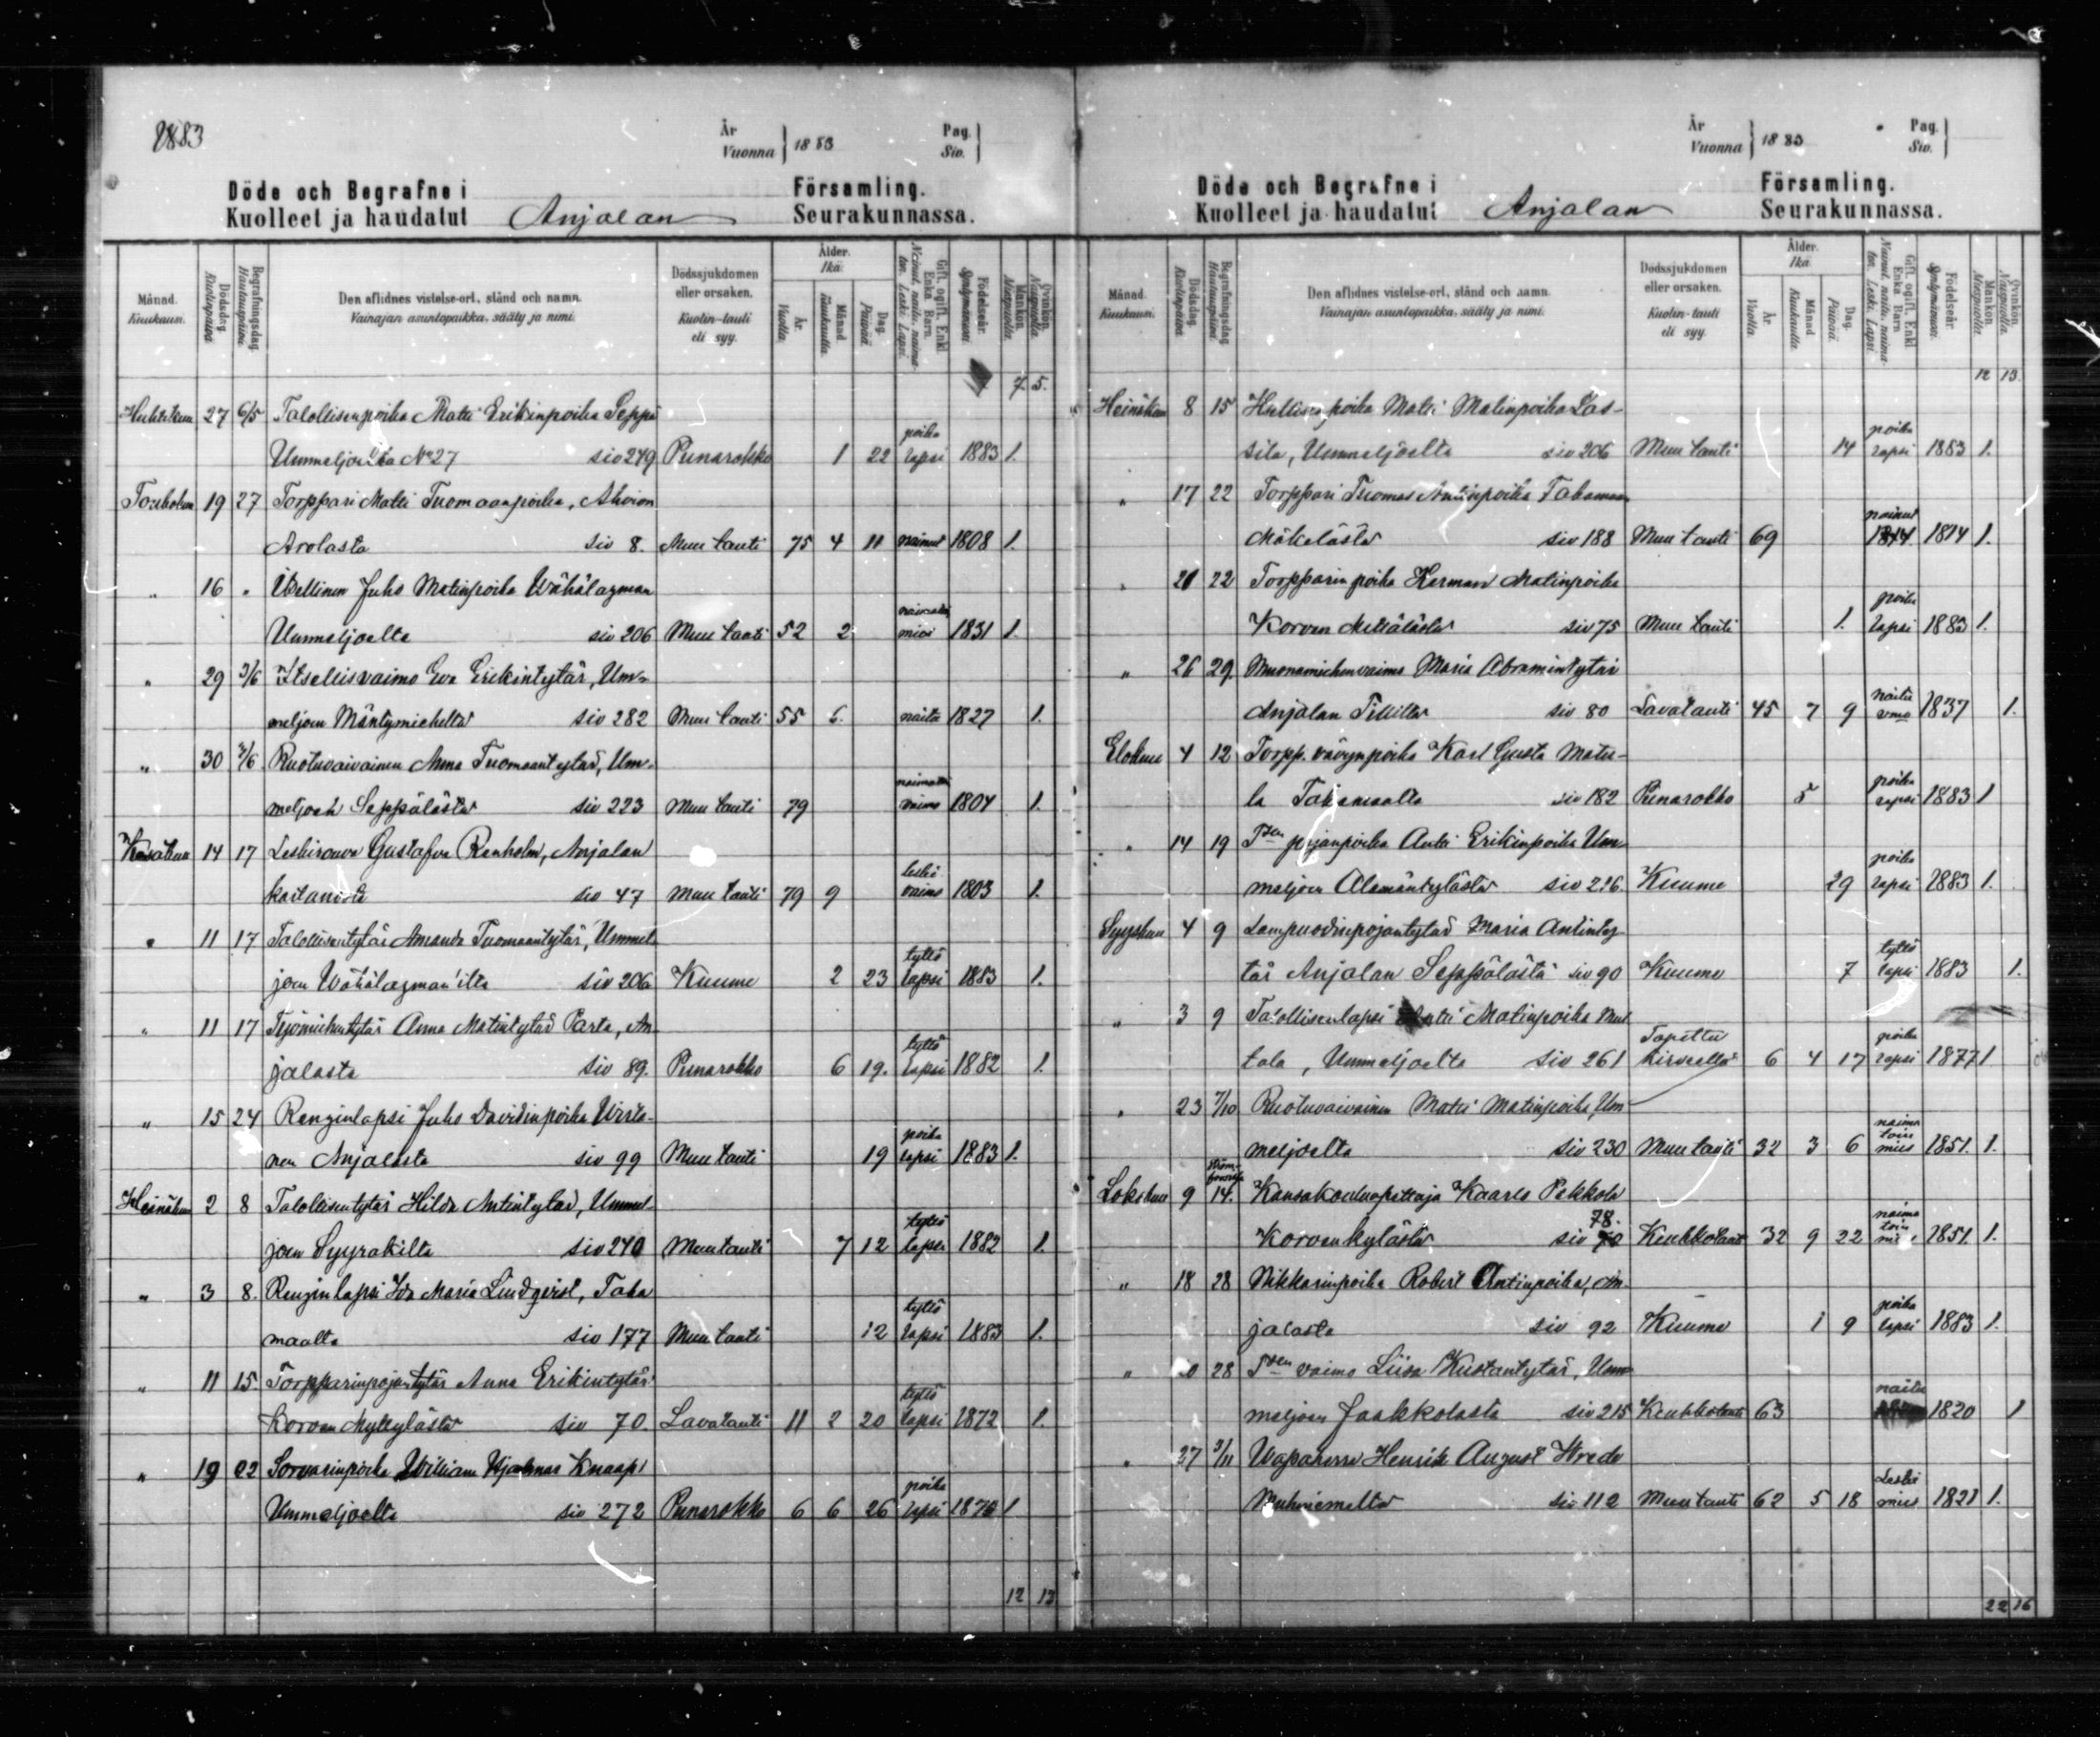 1883
År
Vuonna } 1883
Pag.
Siv.
Döde och Begrafne i Församling.
Kuolleet ja haudatut Anjalan Seurakunnassa.
Månad. Kuukausi.
Dödsdag. Kuolinpäivä.
Begrafningsdag. Hautauspäivä.
Den aflidnes vistelse-ort, stånd och namn.
Vainajan asuntopaikka, sääty ja nimi.
Dödssjukdomen eller orsaken.
Kuolin-tauti eli syy.
Ålder.
Ikä.
År. Vuotta.
Månad. Kuukautta.
Dag. Päivää.
Gift, ogift, Enkl. Enka. Barn.
Nainut, naitu, naimaton. Leski. Lapsi.
Födelseår. Syntymävuosi.
Mankön. Miespuolta.
Qvinkön. Naispuolta.
7. 5.
Huhtikuu 27 6/5 Talollisenpoika Matti Erikinpoika Seppä
Ummeljoelta No 27 siv 249 Punarokko 1 22 poika lapsi 1883 1.
Toukokuu 19 27 Torppari Matti Tuomaanpoika, Ahvion
Arolasta siv 8. Muu tauti 75 4 11 nainut 1808 1.
" 16 " Itsellinen Juho Matinpoika Wähälagman
Ummeljoelta siv 206 Muu tauti 52 2 mies 1831 1.
" 29 3/6 Itsellisvaimo Eva Erikintytär, Um-
meljoen Mäntymichelta siv 282 Muu tauti 55 6. naitu 1827 1.
" 30 3/6. Ruotuvaivainen Anna Tuomaantytär, Um-
meljoen Seppälästä siv 223 Muu tauti 79 vaimo 1804 1.
Kesäkuu 14 17 Leskirouva Gustafva Renholm, Anjalan
siv 47 Muu tauti 79 9 leski vaimo 1803 1.
" 11 17 Talollisentytär Amanda Tuomaantytär, Ummel
joen Wähälagman'ilta siv 206 Kuume 2 23 tyttö lapsi 1883 1.
" 11 17 Työmiehentytär Anna Matintytär Parta, An
jalasta siv 89. Punarokko 6 19. tyttö lapsi 1882 1.
" 15 24 Renginlapsi Juho Davidinpoika Wirta-
nen Anjalasta siv 99 Muu tauti 19 poika lapsi 1883 1.
Heinäkuu 2 8 Talollisentytär Hilda Antintytär, Ummel-
joen Syyrakilta siv 240 Muu tauti 7 12 tyttö lapsi 1882 1.
" 3 8. Renginlapsi Ida Maria Lindqvist, Taka
maalta siv 177 Muu tauti 12 tyttö lapsi 1883 1.
" 11 15. Torpparinpojantytär Anna Erikintytär
Korven Myllylästä siv 70. Lavatauti 11 2 20 tyttö lapsi 1872 1.
" 19 22 Sorvarinpoika William Hjalmar Knaapi
Ummeljoelta siv 272 Punarokko 6 6 26 poika lapsi 1876 1
12 13
År
Vuonna } 1883
Pag.
Siv.
Döde och Begrafne i Församling.
Kuolleet ja haudatut Anjalan Seurakunnassa.
Månad. Kuukausi.
Dödsdag. Kuolinpäivä.
Begrafningsdag. Hautauspäivä.
Den aflidnes vistelse-ort, stånd och namn.
Vainajan asuntopaikka, sääty ja nimi.
Dödssjukdomen eller orsaken.
Kuolin-tauti eli syy.
Ålder.
Ikä.
År. Vuotta.
Månad. Kuukautta.
Dag. Päivää.
Gift, ogift, Enkl. Enka. Barn.
Nainut, naitu, naimaton. Leski. Lapsi.
Födelseår. Syntymävuosi.
Mankön. Miespuolta.
Qvinkön. Naispuolta.
12 13.
Heinäkuu 8 15 Matti Matinpoika Las-
sila, Ummeljoelta siv 206 Muu tauti 14 poika lapsi 1883 1.
" 17 22 Torppari Tuomas Antinpoika Takamaan
Mäkelästä siv 188 Muu tauti 69 nainut 1814 1814 1.
" 21 22 Torpparinpoika Herman Matinpoika
Korven Mettälästä siv 75 Muu tauti 1. poika lapsi 1883 1.
" 26 29 Muonamiehenvaimo Maria Abramintytär
Anjalan Tillilta siv 80 Lavatauti 45 7 9 naitu vmo 1837 1.
Elokuu 4 12 Torpp. vävynpoika Karl Gusta Matu-
la Takamaalta siv 182 Punarokko 5 poika lapsi 1883 1
" 14 19 Tsen pojanpoika Antti Erikinpoika Um-
meljoen Alamäntylästä siv 216 Kuume 29 poika lapsi 1883 1.
Syyskuu 4 9 Lampuodinpojantytär Maria Antinty
tär Anjalan Seppälästä siv 90 Kuume 7 tyttö lapsi 1883 1.
" 3 9 Talollisenlapsi Antti Matinpoika Mat
tala, Ummeljoelta siv 261 Tapettu kirveellä 6 4 17 poika lapsi 1877 1
" 23 7/10 Ruotuvaivainen Matti Matinpoika, Um
meljoelta siv 230 Muu tauti 32 3 6 naima toin mies 1851. 1.
Lokakuu 9 14. Kansakoulunopettaja Kaarlo Pekkola
Korvenkylästä siv 70 78. Keuhkotauti 32 9 22 naima toin mies 1851. 1.
" 18 28 Nikkarinpoika Robert Antinpoika, An-
jalasta siv 92 Kuume 1 9 poika lapsi 1883 1.
" 20 28 Tsen vaimo Liisa Kustantytär, Um-
meljoen Jaakkolasta siv 215 Keuhkotauti 63 naitu 1820 1
" 27 3/11 Waparerra Henrik August Wrede
siv 112 Muu tauti 62 5 18 Leski mies 1821 1.
22 16